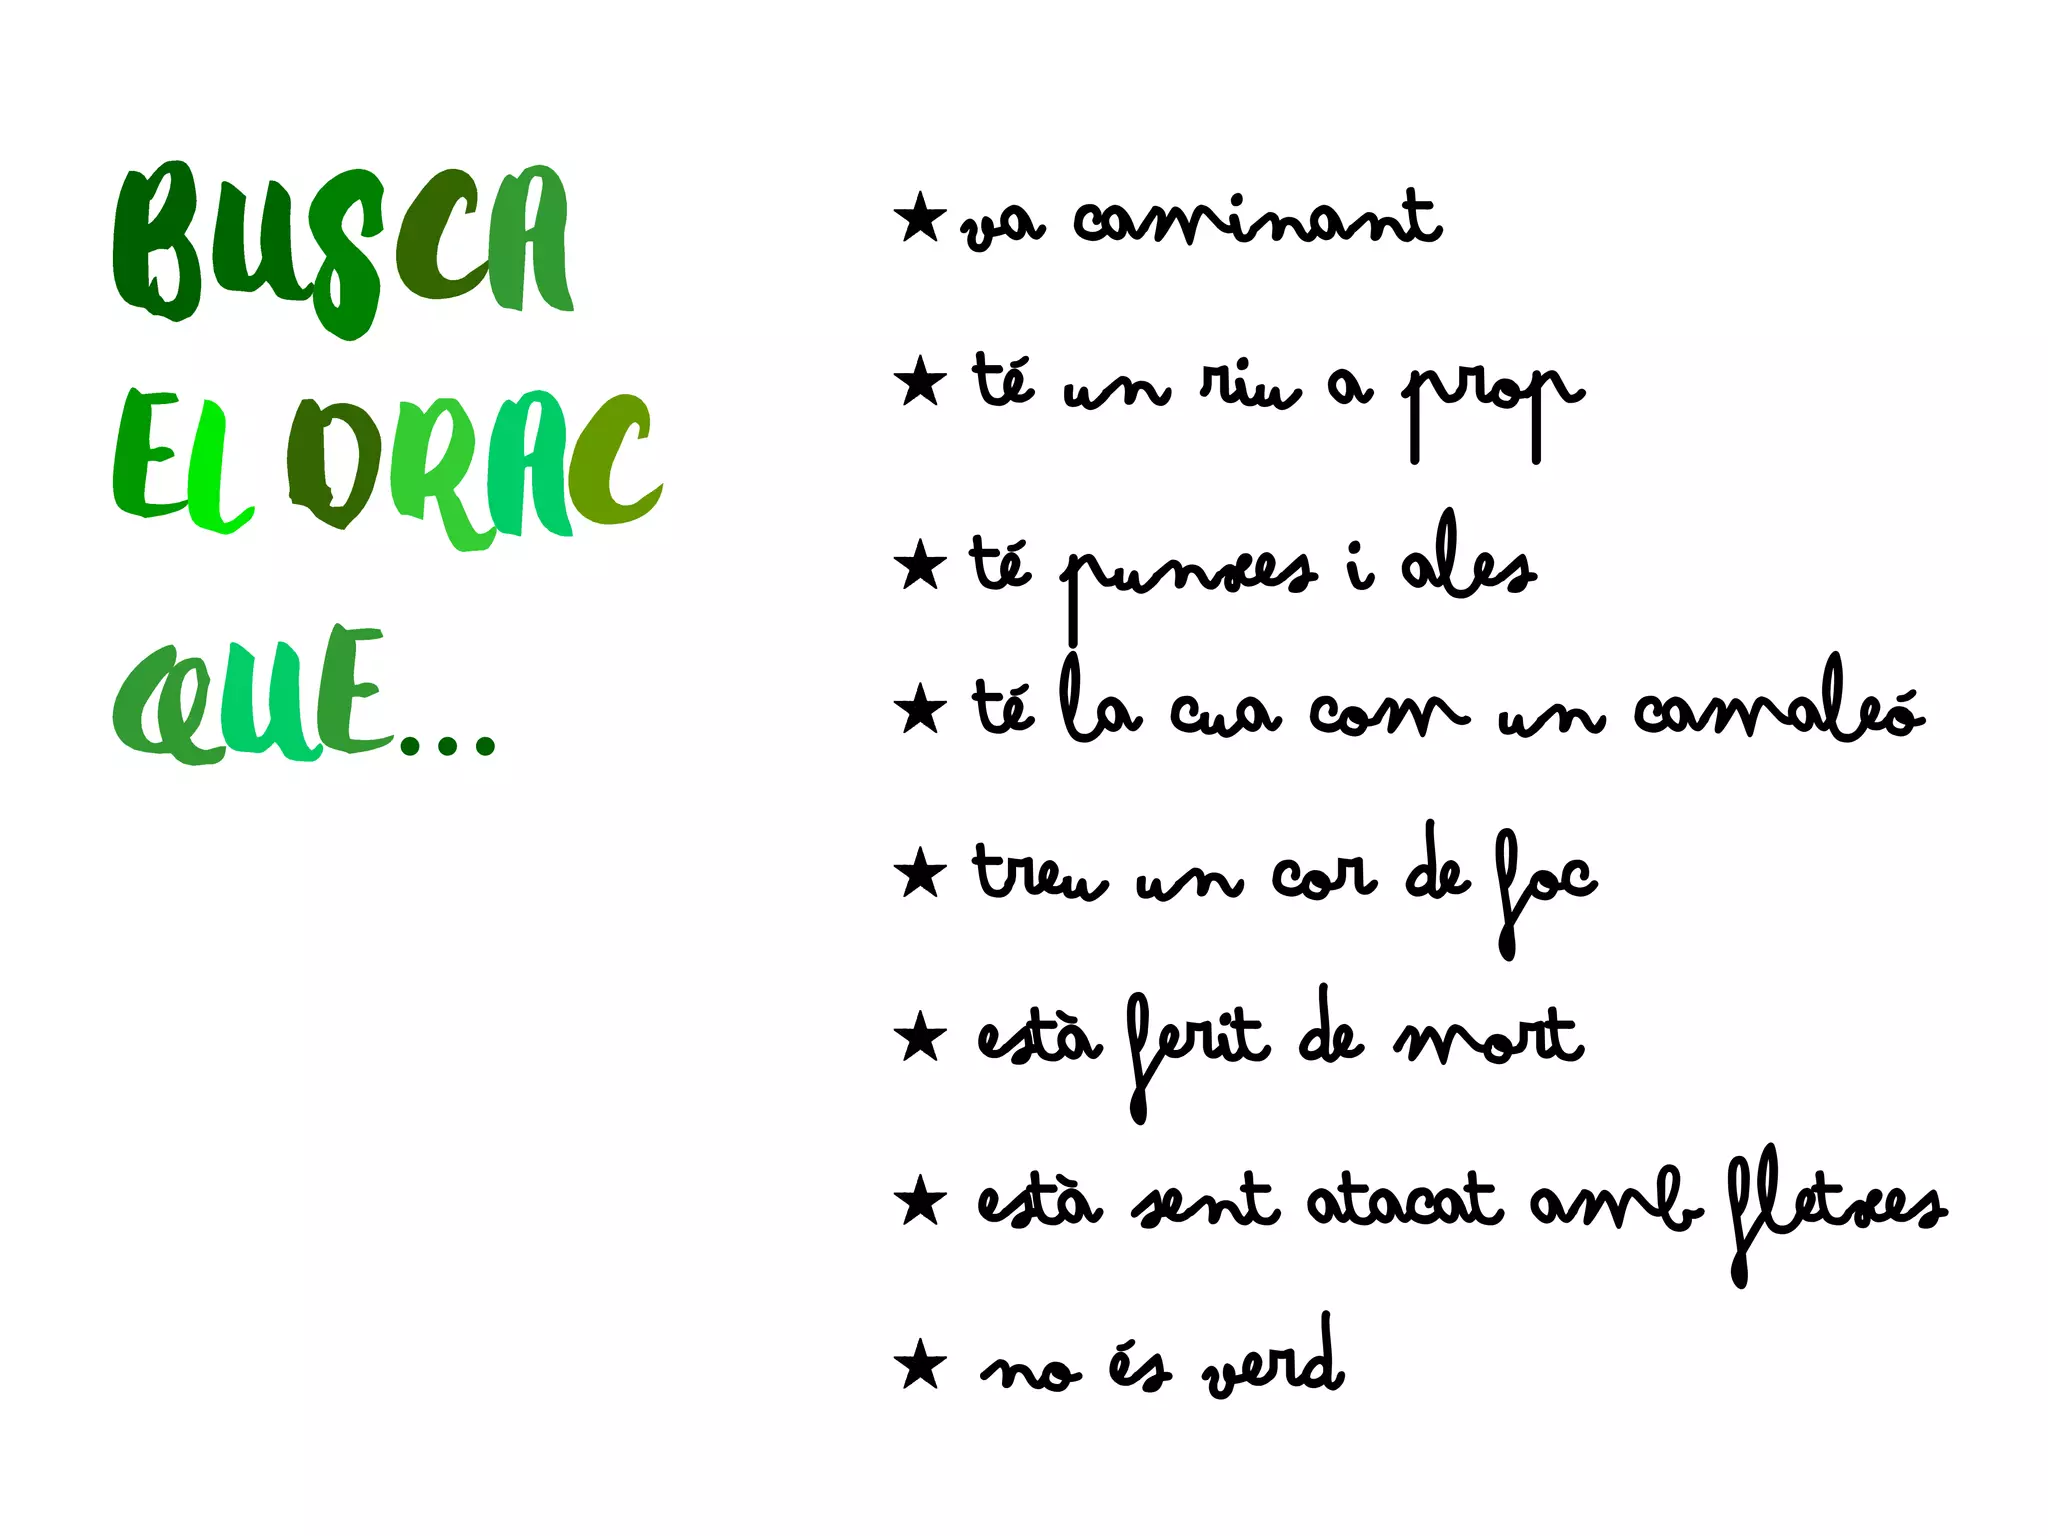 BUSCA
EL DRAC
QUE...
★ va caminant
★ té un riu a prop
★ té punxes i ales
★ té la cua com un camaleó
★ treu un cor de foc
★ està ferit de mort
★ està sent atacat amb fletxes
★ no és verd